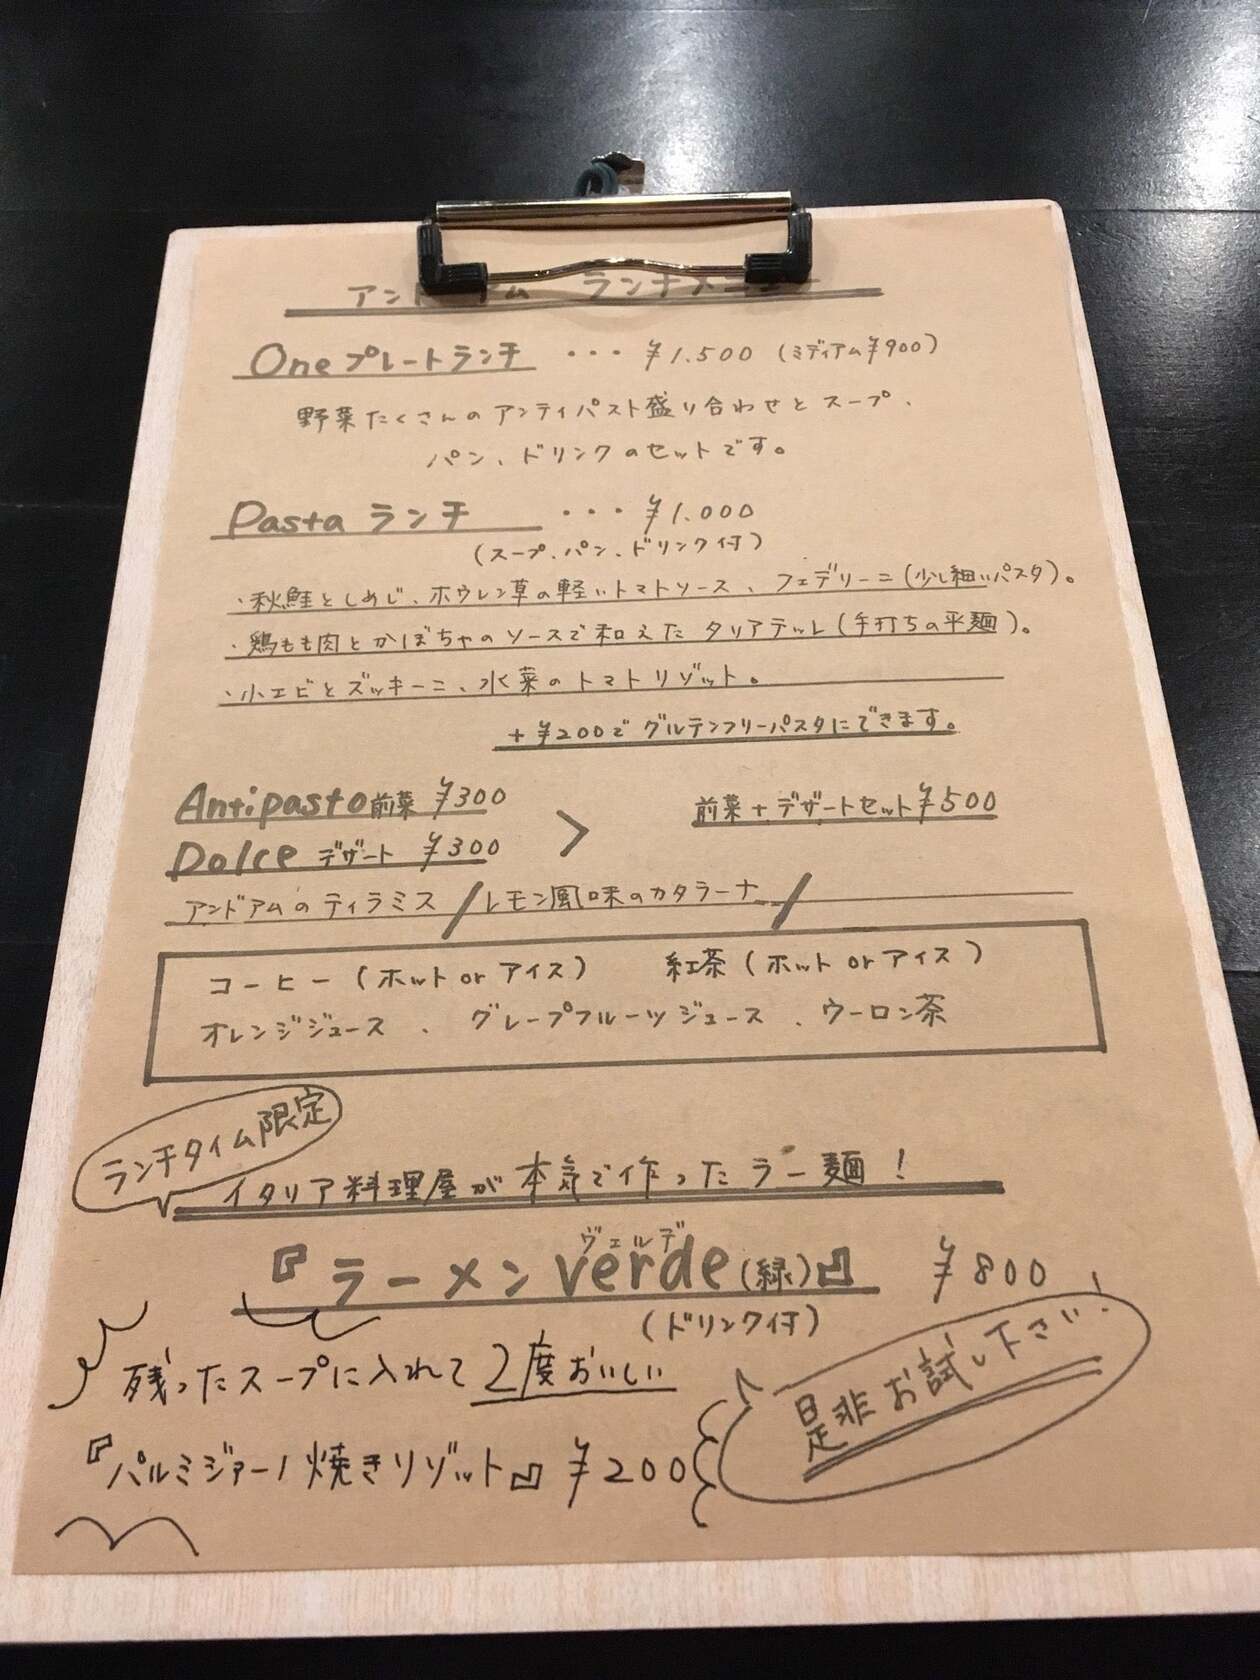 アンドアム ランチメニュー
Oneプレートランチ ・・・ ¥1.500 (ミディアム¥900)
野菜たくさんのアンティパスト盛り合わせとスープ、
パン、ドリンクのセットです。
Pasta ランチ ・・・ ¥1.000
(スープ、パン、ドリンク付)
・秋鮭としめじ、ホウレン草の軽いトマトソース、フェデリーニ(少し細いパスタ)。
・鶏もも肉とかぼちゃのソースで和えたタリアテッレ(手打ちの平麺)。
・小エビとズッキーニ、水菜のトマトリゾット。
+¥200でグルテンフリーパスタにできます。
Antipasto前菜 ¥300
Dolce デザート ¥300
> 前菜+デザートセット¥500
アンドアムのティラミス / レモン風味のカタラーナ /
コーヒー(ホット or アイス) 紅茶(ホット or アイス)
オレンジジュース 、 グレープフルーツジュース 、ウーロン茶
ランチタイム限定
イタリア料理屋が本気で作ったラー麺!
ヴェルデ
『ラーメンverde(緑)』 ¥800
(ドリンク付)
残ったスープに入れて2度おいしい
『パルミジャーノ焼きリゾット』¥200
是非お試し下さい!